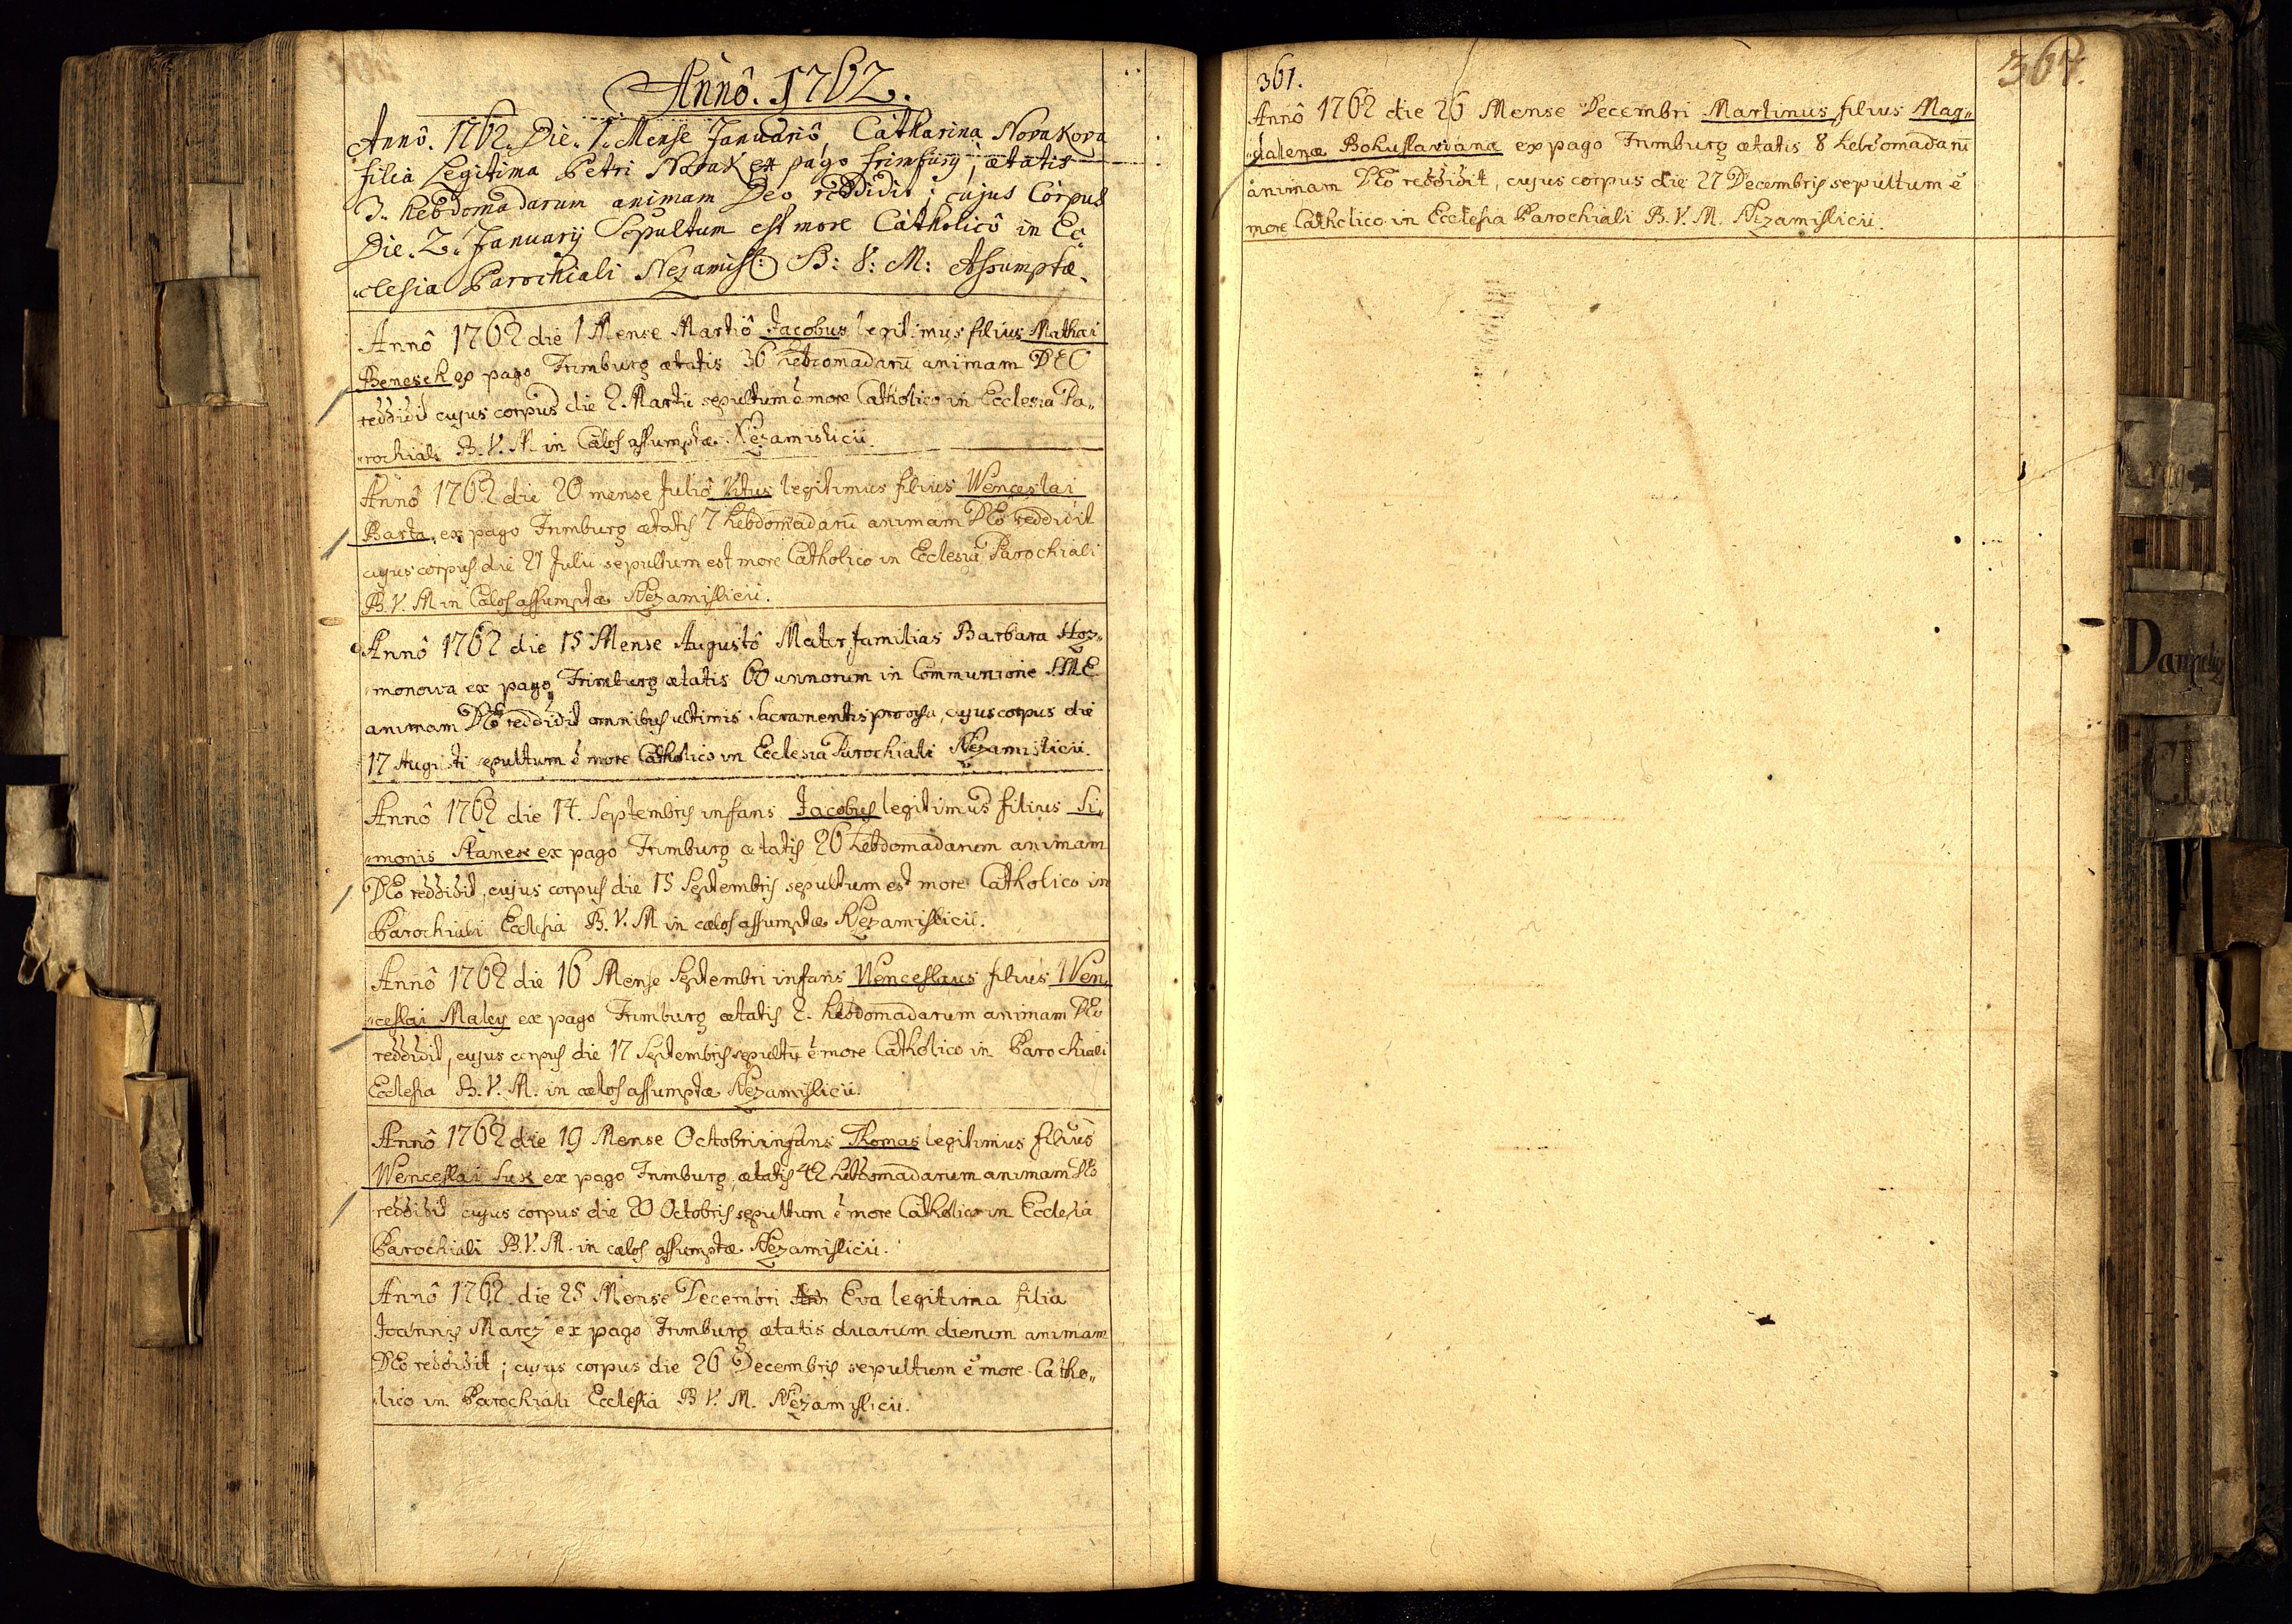 Annô. 1762.
Annô. 1762. Die. 1. Mense Januariô, Catharina Novakova
filia Legitima Petri Novak ex pago frimfurg, ætatis
3. hebdomadarum animam Deo reddidit; cujus Corpus
Die. 2. Januarij Sepultum est more Catholicô in Ec„
„clesia Parochiali Nezamisl: B: V: M: Assumptæ.
Annô 1762 die 1 Mense Martiô Jacobus legitimus filius Mathæi
Benesch ex pago Frimburg ætatis 36 hebdomadarū animam DEO
reddidit cujus corpus die 2. Martii sepultum ē more Catholico in Ecclesia Pa„
„rochiali B. V. M. in Cælos assumptæ Nezamislicii.
Annô 1762 die 20 mense Juliô Vitus legitimus filius Wenceslai
Barta, ex pago Frimburg ætatis 7 hebdomadarū animam DEo reddidit
cujus corpus die 21 Julii sepultum est more Catholico in Ecclesia Parochiali
B. V. M in Cælos assumptæ Nezamislicii.
Annô 1762 die 15 Mense Augustô Mater familias Barbara Hoz„
„monowa ex pago Frimburg ætatis 60 annorum in Communione SME
animam DEo reddidit omnibus ultimis Sacramentis provisa, cujus corpus die
17 Augusti sepultum ē more Catholico in Ecclesia Parochiali Nezamislicii.
Annô 1762 die 14. Septembris infans Jacobus legitimus filius Si„
„monis Stanek ex pago Frimburg ætatis 26 hebdomadarum animam
DEo reddidit, cujus corpus die 15 Septembris sepultum est more Catholico in
Parochiali Ecclesia B. V. M in cælos assumptæ Nezamislicii.
Annô 1762 die 16 Mense Septembri infans Wenceslaus filius Wen„
„ceslai Maley ex pago Frimburg ætatis 2. hebdomadarum animam DEo
reddidit, cujus corpus die 17 Septembris sepultū ē more Catholico in Parochiali
Ecclesia B. V. M. in cælos assumptæ Nezamislicii.
Annô 1762 die 19 Mense Octobri infans Thomas legitimus filius
Wenceslai Suk ex pago Frimburg, ætatis 42 hebdomadarum animam DEo
reddidit cujus corpus die 20 Octobris sepultum ē more Catholico in Ecclesia
Parochiali B. V. M. in cælos assumptæ Nezamislicii.
Annô 1762 die 25 Mense Decembri Eva legitima filia
Joannis Marcz ex pago Frimburg ætatis duarum dierum animam
DEo reddidit; cujus corpus die 26 Decembris sepultum ē more Catho„
„lico in Parochiali Ecclesia B V. M. Nezamislicii.
361.
367.
Annô 1762 die 26 Mense Decembri Martinus filius Mag„
„dalenæ Bohuslavianæ ex pago Frimburg ætatis 8 hebdomadarū
animam DEo reddidit, cujus corpus die 27 Decembris sepultum ē
more Catholico in Ecclesia Parochiali B. V. M. Nezamislicii.